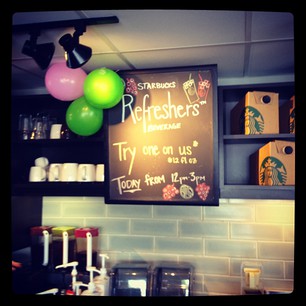 STARBUCKS
Refreshers™
BEVERAGE
Try one on us*
*12 fl oz
TODAY FROM 12pm-3pm